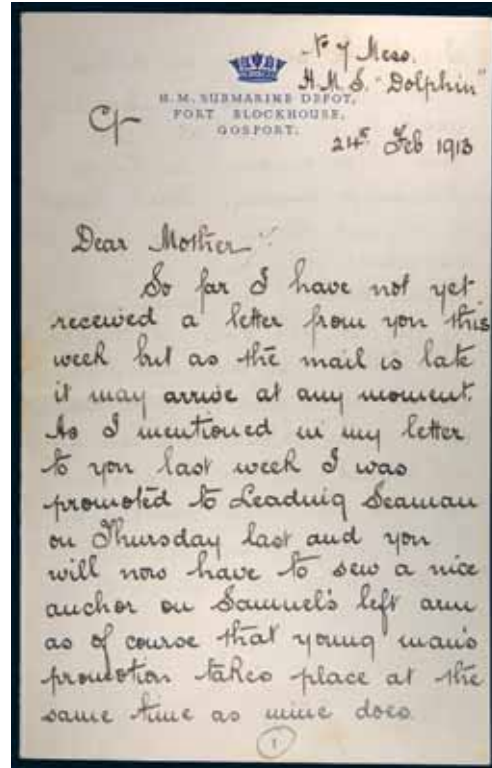 No 7 Mess.
H.M.S. "Dolphin"
H.M. SUBMARINE DEPOT,
FORT BLOCKHOUSE,
GOSPORT.
24th Feb 1913
Dear Mother
So far I have not yet
received a letter from you this
week but as the mail is late
it may arrive at any moment.
As I mentioned in my letter
to you last week I was
promoted to Leading Seaman
on Thursday last and you
will now have to sew a nice
anchor on Samuel's left arm
as of course that young man's
promotion takes place at the
same time as mine does.
1